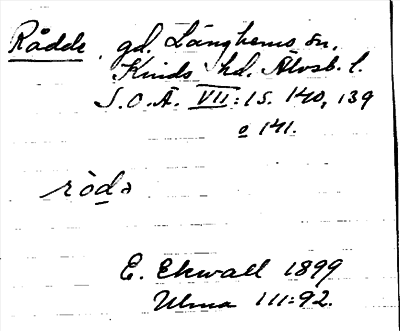 Rådde, gd. Länghems sn,
Kinds hd. Älvsb. l.
S.O.Ä. VII:15. 140, 139
o 141.
E. Ekwall 1899
Ulma 111:92.